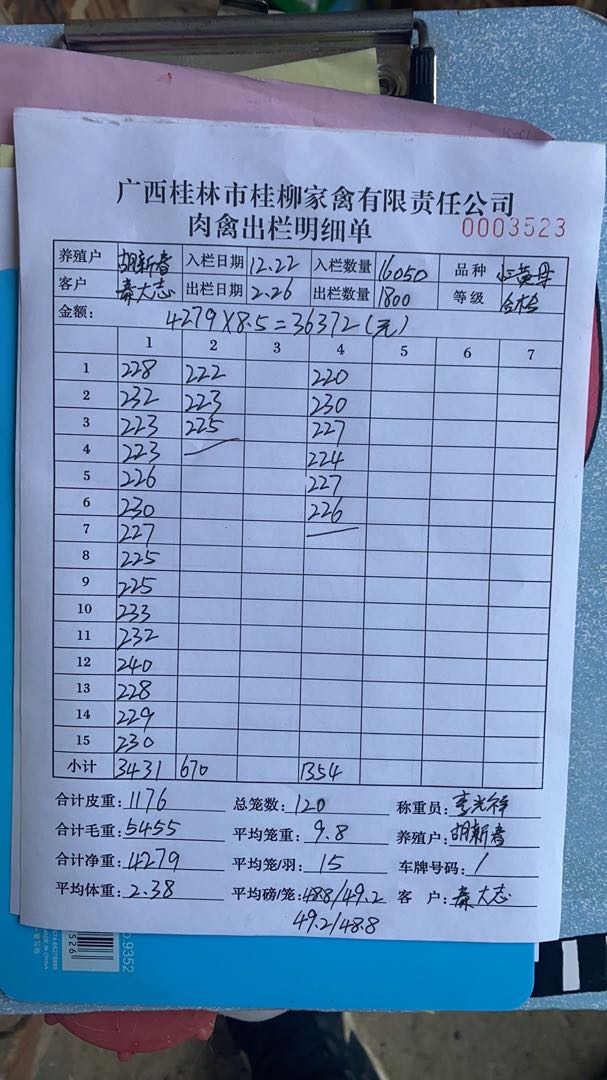 广西桂林市桂柳家禽有限责任公司
肉禽出栏明细单 0003523
养殖户 胡新春 入栏日期 12.22 入栏数量 16050 品种
客户 秦大志 出栏日期 2.26 出栏数量 1800 等级 合格
金额: 4279×8.5=36372(元)
1 2 3 4 5 6 7
1 228 222 220
2 232 223 230
3 223 225 227
4 223 224
5 226 227
6 230 226
7 227
8 225
9 225
10 233
11 232
12 240
13 228
14 229
15 230
小计 3431 670 1354
合计皮重: 1176 总笼数: 120 称重员:
合计毛重: 5455 平均笼重: 9.8 养殖户: 胡新春
合计净重: 4279 平均笼/羽: 15 车牌号码: /
平均体重: 2.38 平均磅/笼: 48.8/49.2 客户: 秦大志
49.2/48.8
0.9352
MADE IN CHINA